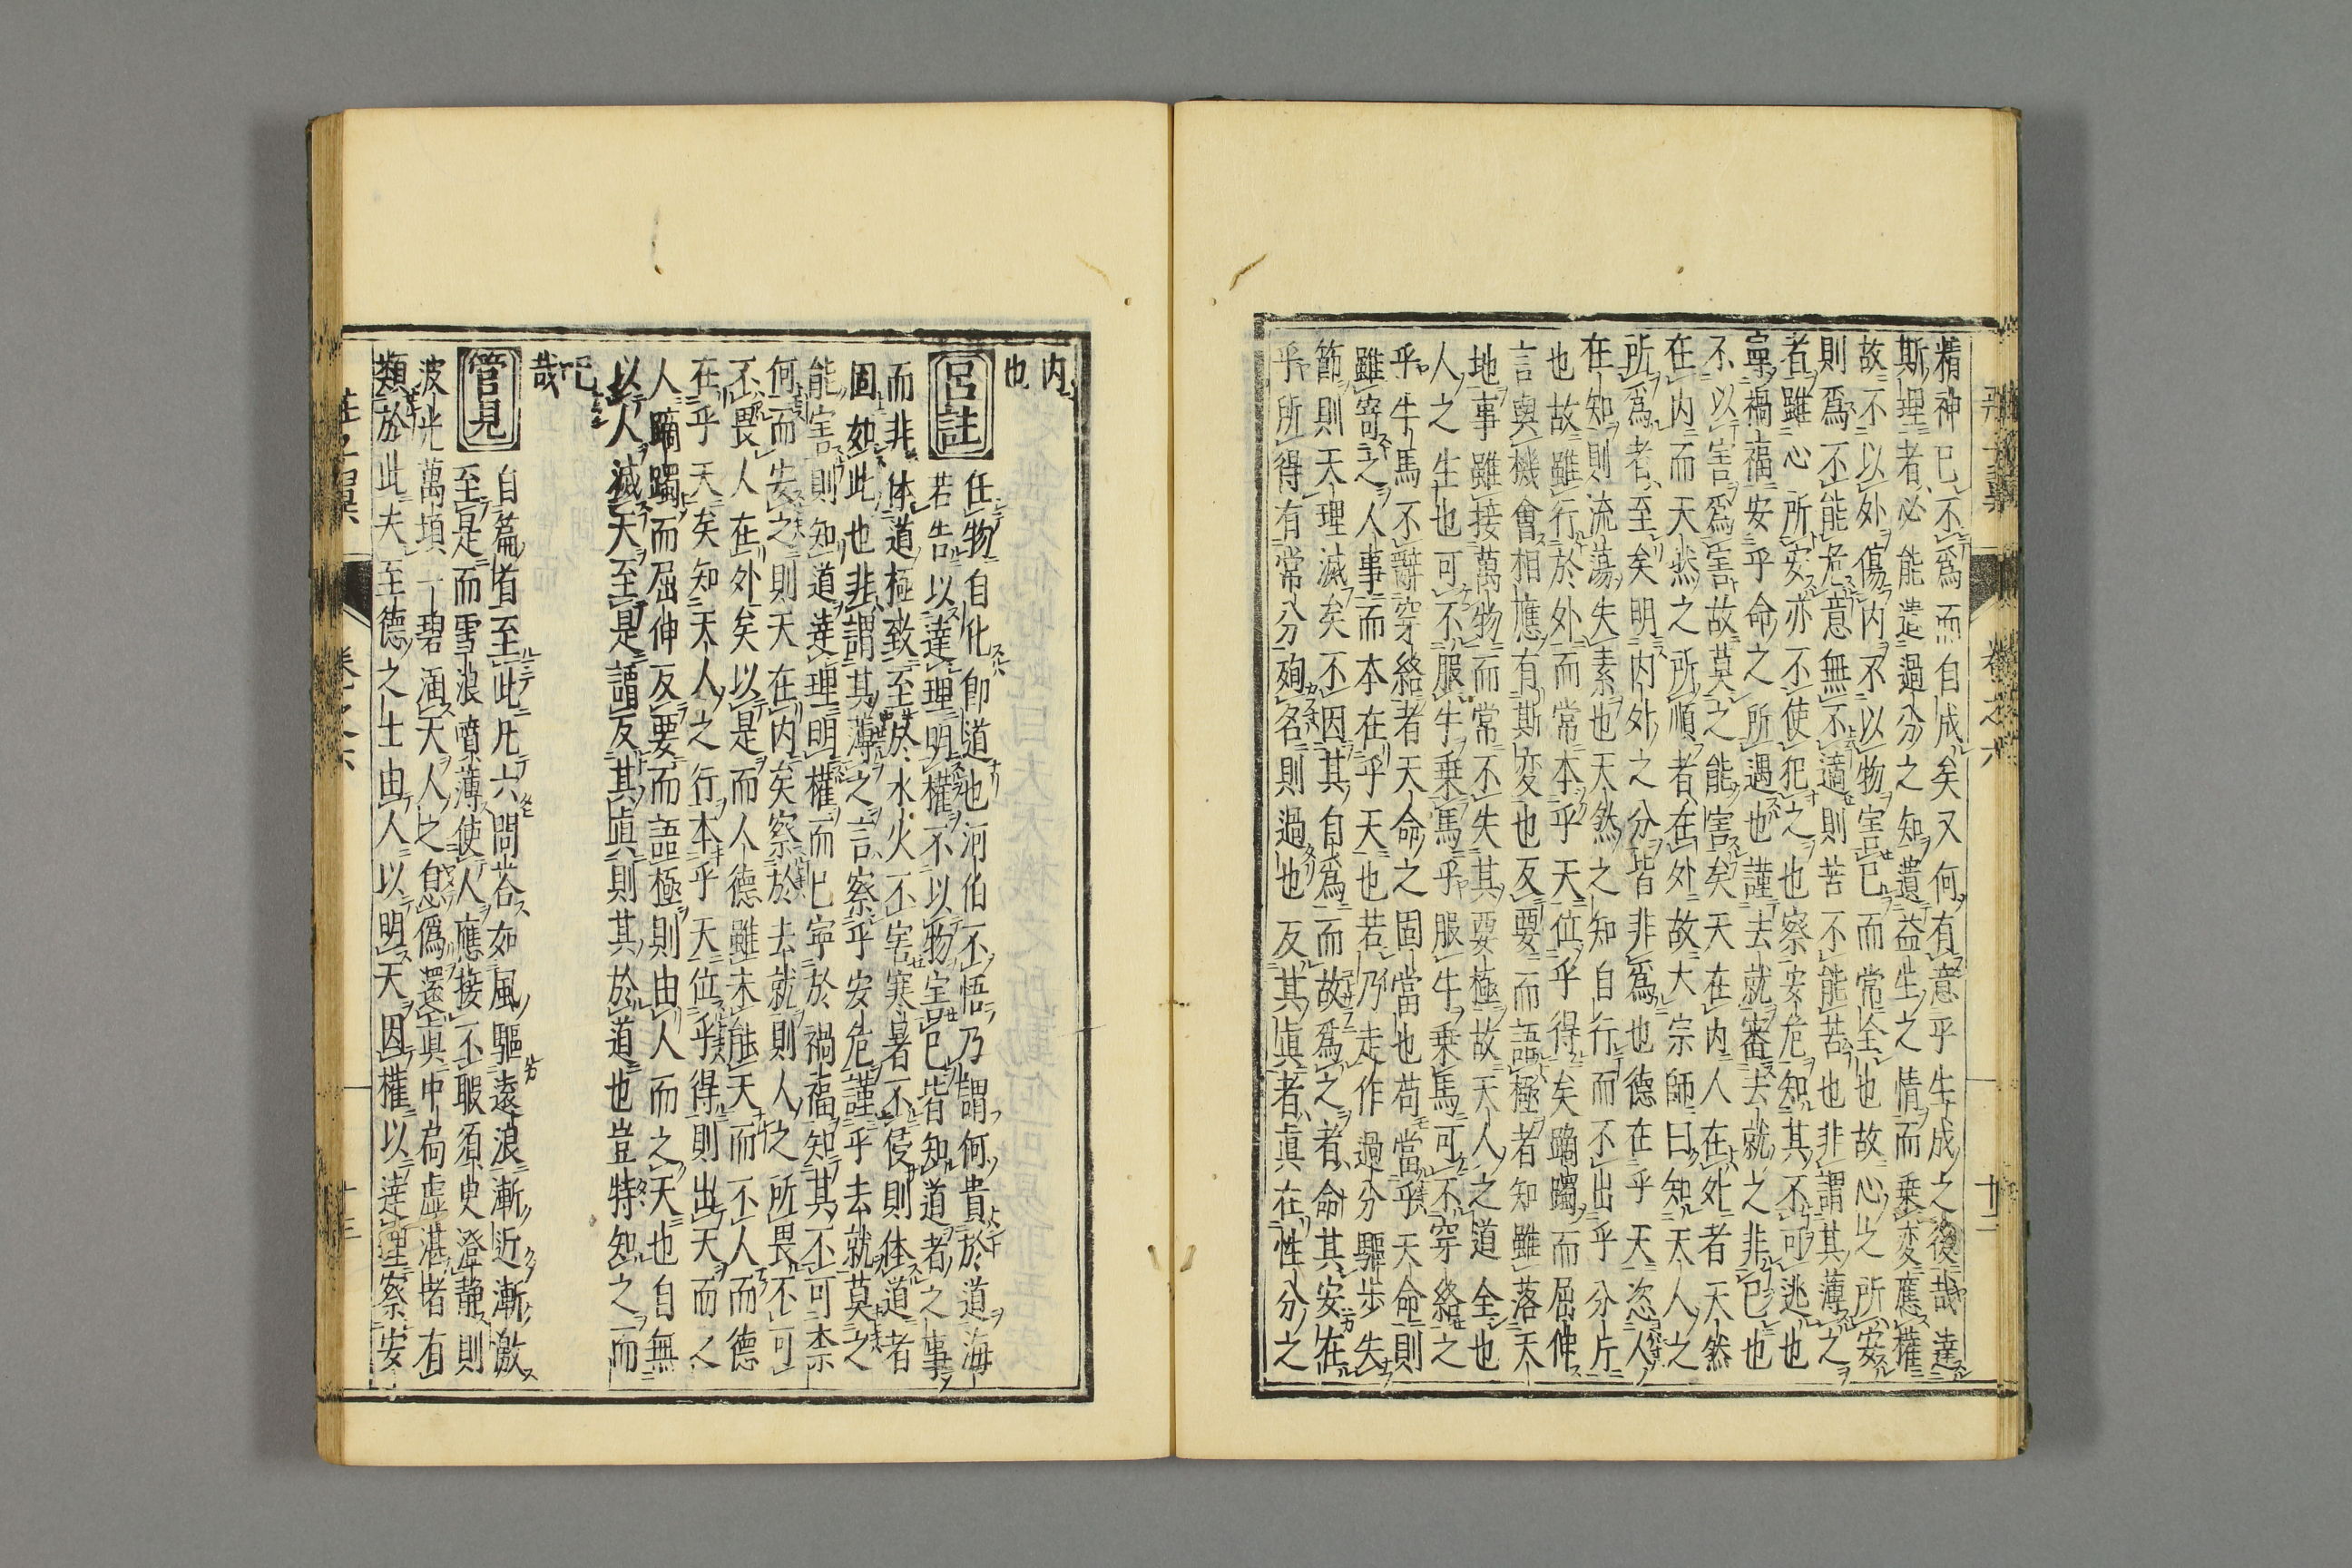 精神已不爲而自成矣又何有意乎生成之後哉達
斯理者必能遣過分之知遺益生之情而乗変應權
故不以外傷内不以物害已而常全也故心之所安
則爲不能危意無不適則苦不能苦也非謂其薄之
者雖心所安亦不使犯之也察安危知其不可逃也
寧禍福安乎命之所遇也謹去就審去就之非已也
不以害爲害故莫之能害矣天在内人在外者天然
在内而天然之所順者在外故大宗師曰知天人之
所爲者至矣明内外之分皆非爲也德在乎天恣人
在知則流蕩失素也天然之知自行而不出乎分片
也故雖行於外而常本乎天位乎得矣蹢躅而屈伸
言與機會相應有斯変也反要而語極者知雖落天
地事雖接萬物而常不失其要極故天人之道全也
人之生也可不服牛乗馬乎服牛乗馬可不穿絡之
乎牛馬不辭穿絡者天命之固當也苟當乎天命則
雖寄之人事而本在乎天也若乃走作過分驅歩失
節則天理滅矣不因其自爲而故爲之者命其安在
乎所得有常分殉名則過也反其眞者眞在性分之
卷之六
十二
内
也
呂註
任物自化即道也河伯不悟乃謂何貴於道海
若告以達理明權不以物害已皆知道者之事
而非体道極致至於水火不害寒暑不侵則体道者
固如此也非謂其薄之言察乎安危謹乎去就莫之
能害則知道達理明權而已寧於禍福知其不可柰
何而安之則天在内矣察於去就則人之所畏不可
不畏人在外矣以是而人德雖未能天而不人而德
在乎天矣知天人之行本乎天位乎得則出天而之
人蹢躅而屈伸反要而語極則由人而之天也自無
以人滅天至是謂反其眞則其於道也豈特知之而
已
哉
管見
自篇首至此凡六問荅如風驅遠浪漸近漸激
至是而雪浪噴薄使人應接不暇須臾澄静則
波光萬頃一碧涵天人之息僞還眞中扃虛湛者有
類於此夫至德之士由人以明天因權以達理察安